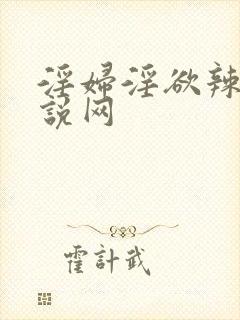 淫婦淫欲辣
説网
霍計武